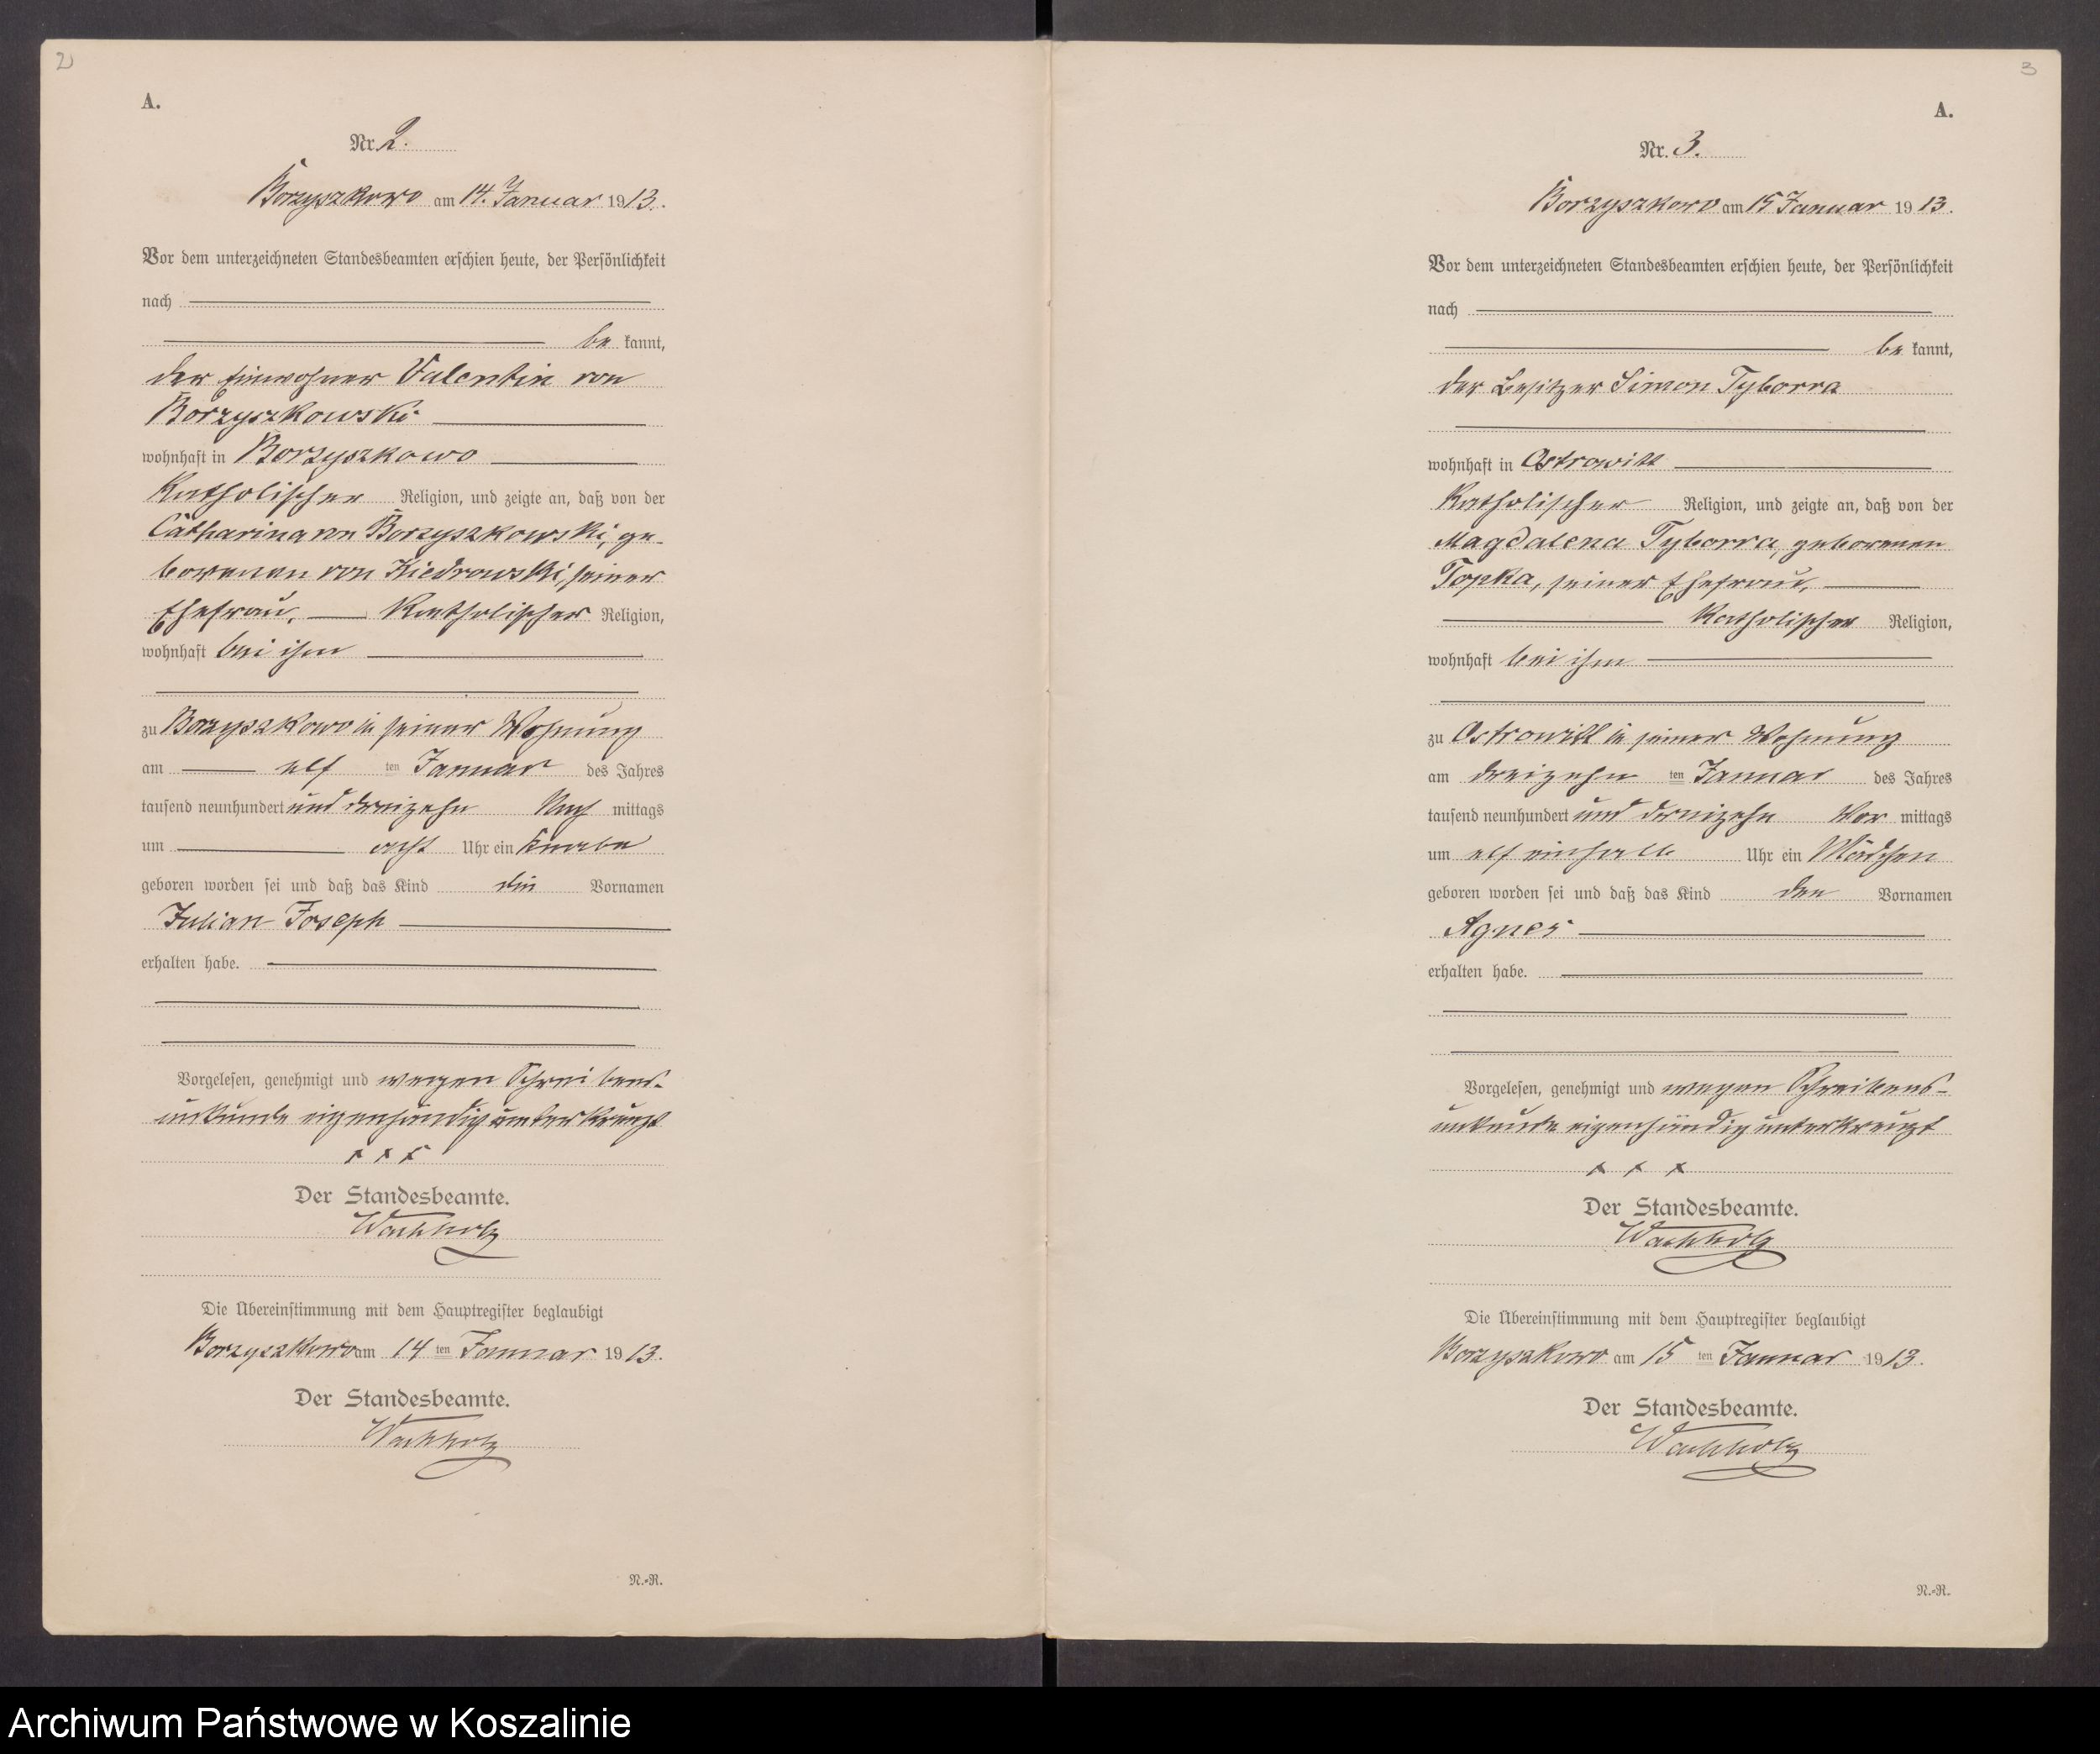 2
A.
Nr. 2.
Borzyszkowo am 14. Januar 1913.
Vor dem unterzeichneten Standesbeamten erschien heute, der Persönlichkeit
nach
be kannt,
der Einwohner Valentin von
Borzyszkowski
wohnhaft in Borzyszkowo
Katholischer Religion, und zeigte an, daß von der
Catharina von Borzyszkowski, ge-
borenen von Kiedrowski, seiner
Ehefrau, Katholischer Religion,
wohnhaft bei ihm
zu Borzyszkowo in seiner Wohnung
am elf ten Januar des Jahres
tausend neunhundert und dreizehn Nach mittags
um acht Uhr ein Knabe
geboren worden sei und daß das Kind die Vornamen
Julian Joseph
erhalten habe.
Vorgelesen, genehmigt und wegen Schreibens-
unkunde eigenhändig unterkreuzt
x x x
Der Standesbeamte.
Wachholz
Die Übereinstimmung mit dem Hauptregister beglaubigt
Borzyszkowo am 14 ten Januar 1913.
Der Standesbeamte.
Wachholz
N.-R.
3
A.
Nr. 3.
Borzyszkowo am 15 Januar 1913.
Vor dem unterzeichneten Standesbeamten erschien heute, der Persönlichkeit
nach
be kannt,
der Besitzer Simon Tyborra
wohnhaft in Ostrowitt
Katholischer Religion, und zeigte an, daß von der
Magdalena Tyborra, geborenen
Topka, seiner Ehefrau,
Katholischer Religion,
wohnhaft bei ihm
zu Ostrowitt in seiner Wohnung
am dreizehn ten Januar des Jahres
tausend neunhundert und dreizehn Vor mittags
um elf einhalb Uhr ein Mädchen
geboren worden sei und daß das Kind den Vornamen
Agnes
erhalten habe.
Vorgelesen, genehmigt und wegen Schreibens-
unkunde eigenhändig unterkreuzt
x x x
Der Standesbeamte.
Wachholz
Die Übereinstimmung mit dem Hauptregister beglaubigt
Borzyszkowo am 15 ten Januar 1913.
Der Standesbeamte.
Wachholz
N.-R.
Archiwum Państwowe w Koszalinie